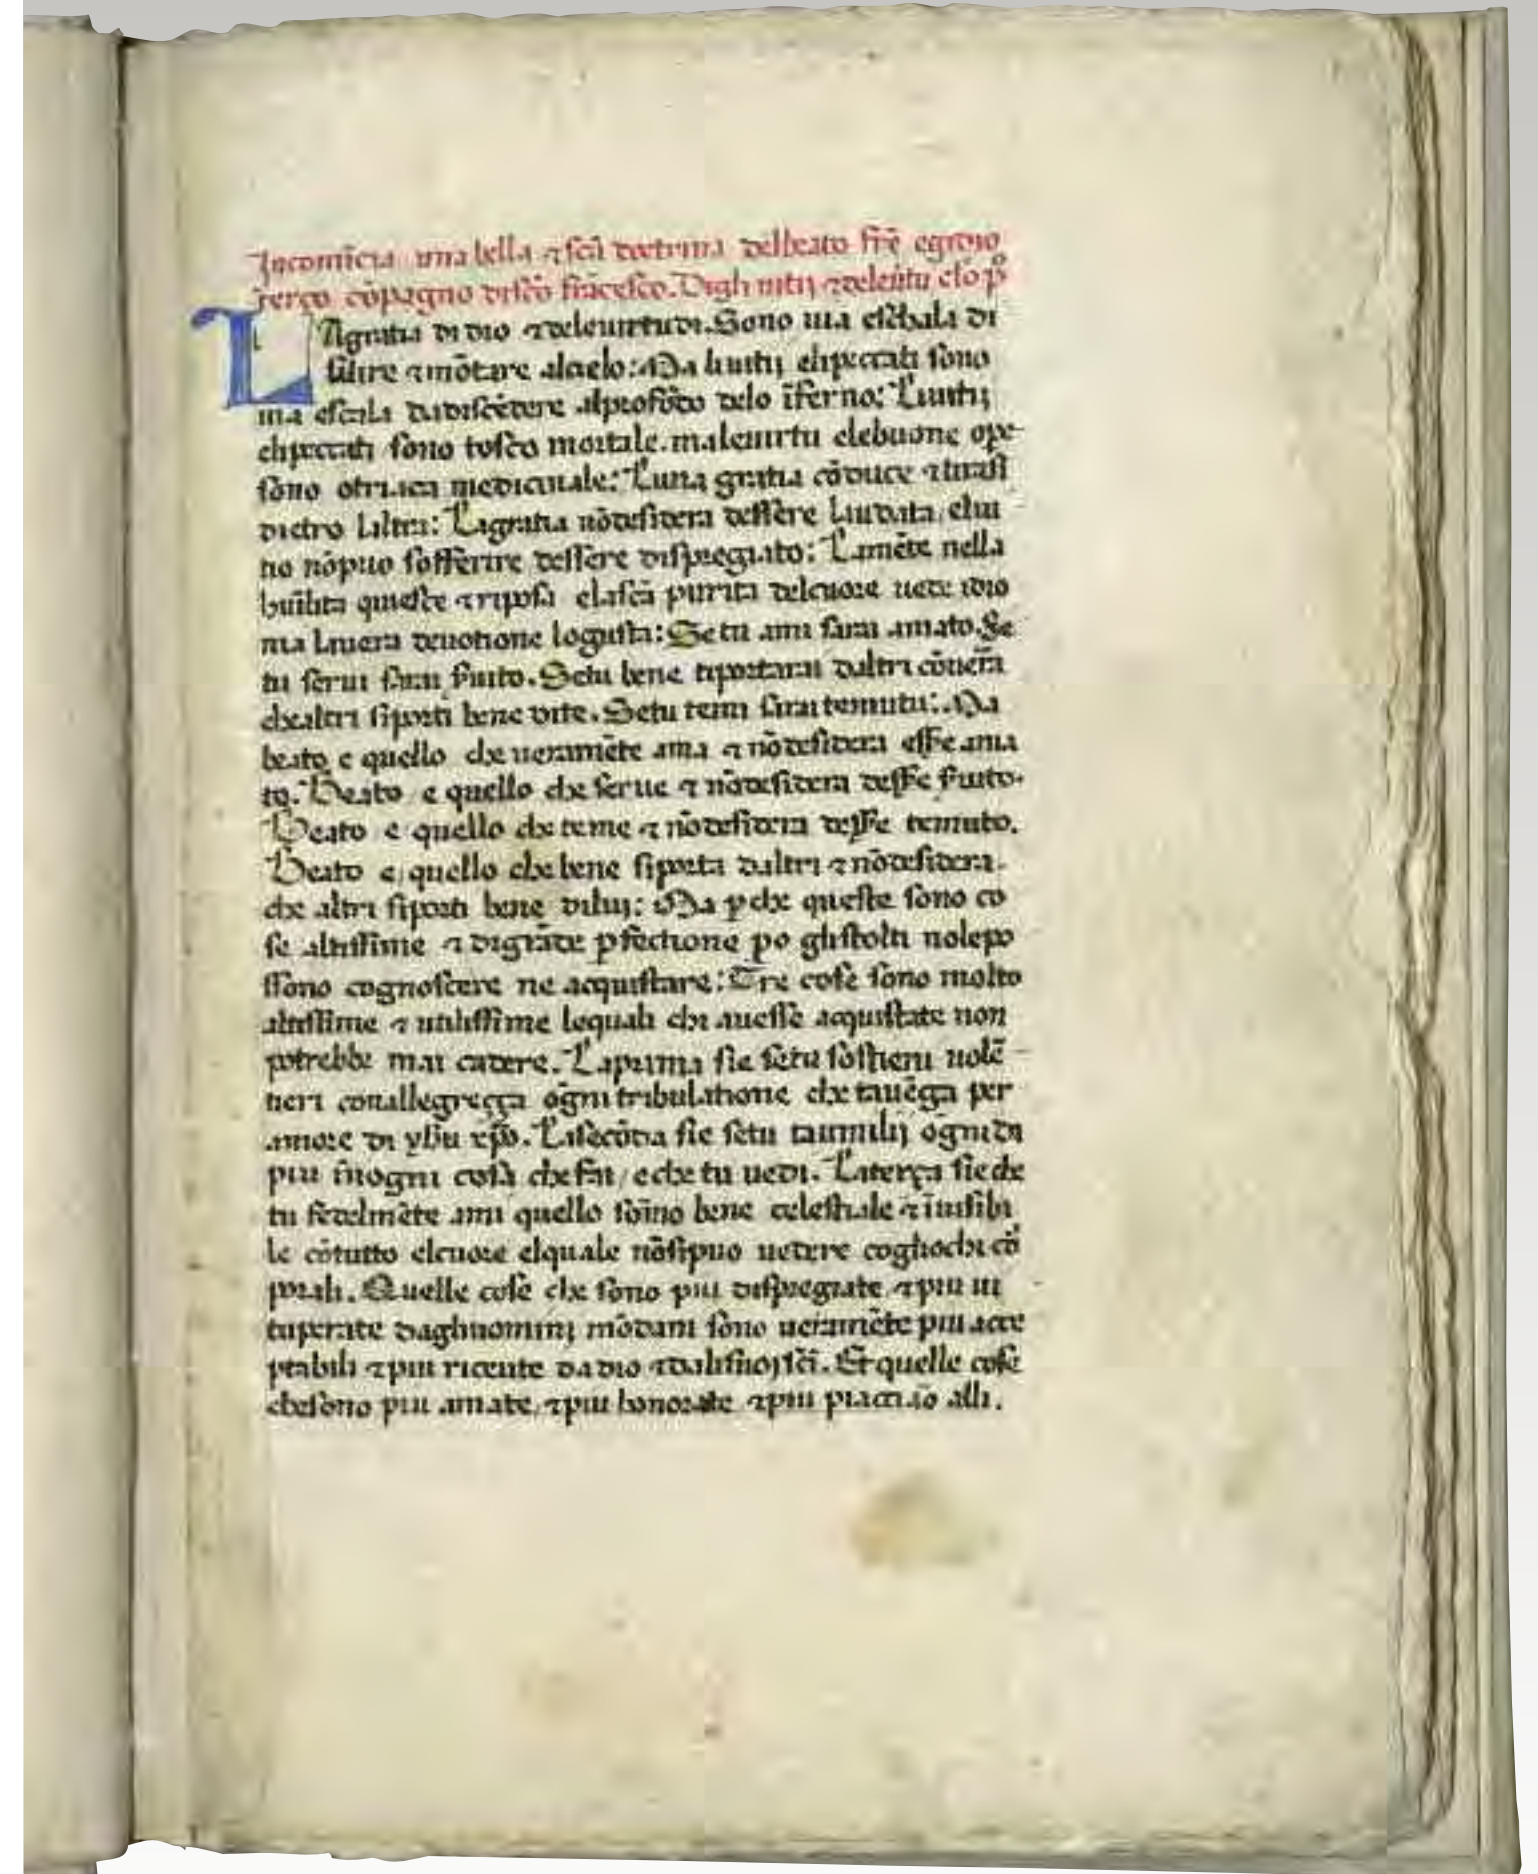 Incomĩcia una bella ⁊ scã doctrina delbeato frẽ egidio
Terço cõpagno discõ frãcesco. Digli uitij ⁊ deleũtu
LAgratia di dio ⁊ deleuirtudi. Sono uia eschala di
salire ⁊ mõtare alcielo: Ma liuitij elipeccati sono
uia escala dadiscẽdere alprofõdo delo ĩferno: Liuitij
elipeccati sono tosco mortale. maleuirtu elebuone ope
sono otriaca medicinale: Luna gratia cõduce ⁊ tirasi
dietro laltra: Lagratia nõdesidera dessere laudata, elui
tio nõpuo sofferire dessere dispregiato: Lamẽte nella
huĩlita quiesce ⁊ riposa elascã purita delcuore uede idio
ma lauera deuotione logusta: Se tu ami sarai amato. Se
tu serui sarai s̃uito. Setu bene tiportarai daltri cõuerã
chealtri siporti bene dite. Setu temi sarai temuto: Ma
beato e quello che ueramẽte ama ⁊ nõdesidera esse ama
to. Beato e quello che serue ⁊ nõdesidera desse s̃uito.
Beato e quello che teme ⁊ nõdesidera desse temuto.
Beato e quello che bene siporta daltri ⁊ nõdesidera
che altri siporti bene dilui: Ma ꝑche queste sono co
se altissime ⁊ digrãde ꝑfectione po glistolti nolepo
ssono cognoscere ne acquistare: Tre cose sono molto
altissime ⁊ utilissime lequali chi auesse acquistate non
potrebbe mai cadere. Laprima sie setu sostieni uolẽ
tieri conallegreçça õgni tribulatione che tauẽga per
amore di yħu xp̃o. Lasecõda sie setu taumilij ogni di
piu ĩnogni cosa che fai / eche tu uedi. Laterça sie che
tu fedelmẽte ami quello sõmo bene celestiale ⁊ ĩuisibi
le cõtutto elcuore elquale nõsipuo uedere cogliochi cõ
porali. Quelle cose che sono piu dispregiate, ⁊ piu ui
tuperate daglhuomini mõdani sono ueramẽte piu acce
ptabili ⁊ piu ricente da dio ⁊ dalisuoj scĩ. Et quelle cose
chesono piu amate, ⁊ piu honorate ⁊ piu piacciõ alli.